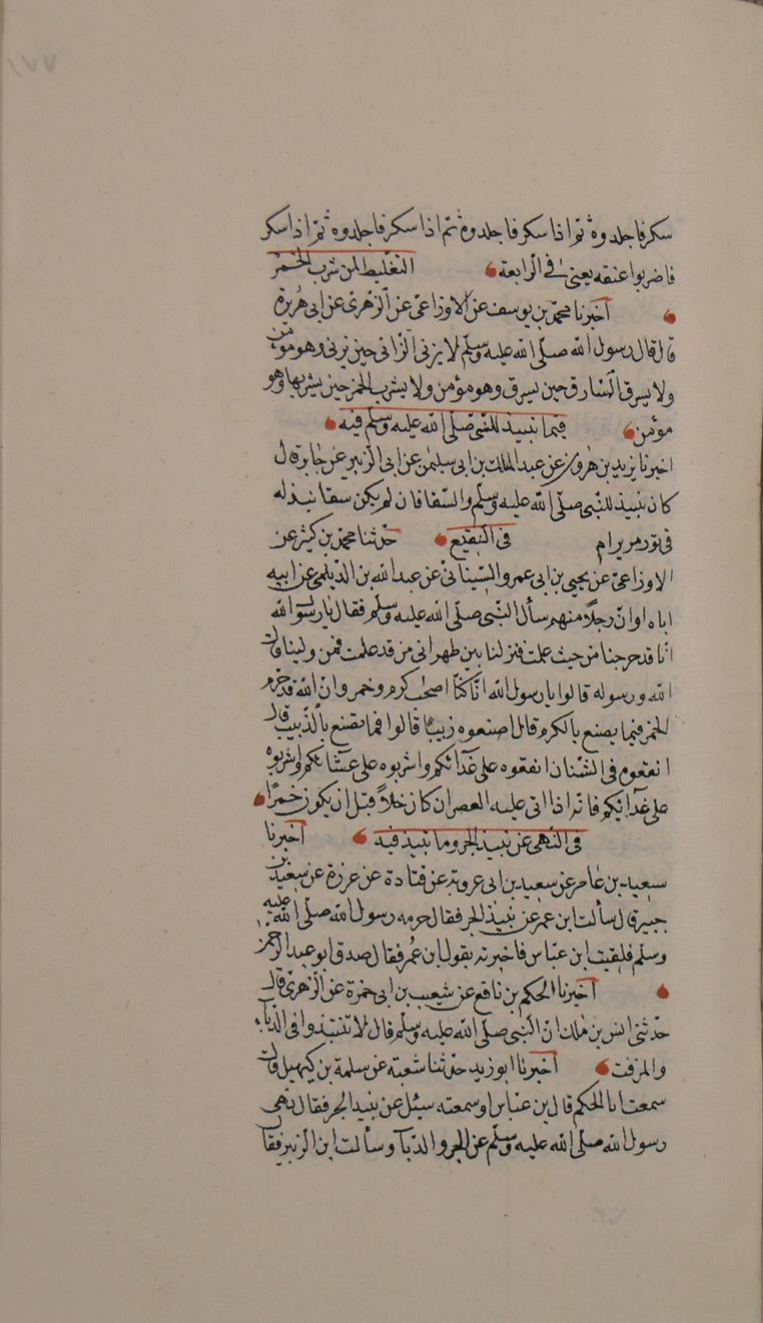 ١٧٧
سكر فاجلدوه ثم اذا سكر فاجلدوه ثم اذا سكر فاجلدوه ثم اذا سكر
فاضربوا عنقه يعنى فى الرابعة التغليط لمن شرب الخمر
أخبرنا محمد بن يوسف عن الاوزاعى عن الزهرى عن ابى هريرة
قال قال رسول الله صلى الله عليه وسلم لا يزنى الزانى حين يزنى وهو مؤمن
ولا يسرق السارق حين يسرق وهو مؤمن ولا يشرب الخمر حين يشربها وهو
مؤمن فيما نبيذ للنبى صلى الله عليه وسلم فيه
اخبرنا يزيد بن هرون عن عبد الملك بن ابى سليمن عن ابى الزبير عن جابر قال
كان نبيذ للنبى صلى الله عليه وسلم والسقا فان لم يكن سقا نبذ له
فى تور مر يرام فى النقيع حدثنا محمد بن كثير عن
الاوزاعى عن يحيى بن ابى عمرو الشيبانى عن عبد الله بن الديلمى عن ابيه
اباه اوان رجلا منهم سأل النبى صلى الله عليه وسلم فقال يا رسول الله
انا قد خرجنا من حيث علمت فنزلنا بين ظهرانى من قد علمت فمن ولينا قال
الله ورسوله قالوا يا رسول الله انا كنا اصحب كرم وخمر وان الله قد حرم
الخمر فيما يصنع بالكرم قال اصنعوه زبيبا قالوا فما يصنع بالذبيب قال
انقعوه فى الشنان انقعوه على غدائكم واشربوه على عشائكم واشربوه
على غدائكم فانه اذا اتى عليه العصران كان خلا قبل ان يكون خمرا
فى النهى عن نبيذ الجر وما نبيذ فيه أخبرنا
سعيد بن عامر عن سعيد بن ابى عروبة عن قتادة عن عزرة عن سعيد بن
جبير قال سألت ابن عمر عن نبيذ الجر فقال حرمه رسول الله صلى الله عليه
وسلم فلقيت ابن عباس فاخبرته بقول ابن عمر فقال صدق ابو عبد الرحمن
أخبرنا الحكم بن نافع عن شعيب بن ابى حمزة عن الزهرى قال
حدثنى انس بن ملك ان النبى صلى الله عليه وسلم قال لا تنتبذوا فى الدباء
والمزفت أخبرنا ابو زيد حدثنا شعبة عن سلمة بن كهيل قال
سمعت ابا الحكم قال بن عباس او سمعته سئل عن نبيد الجر فقال نهى
رسول الله صلى الله عليه وسلم عن الجر والدبآ وسألت ابن الزبير فقا